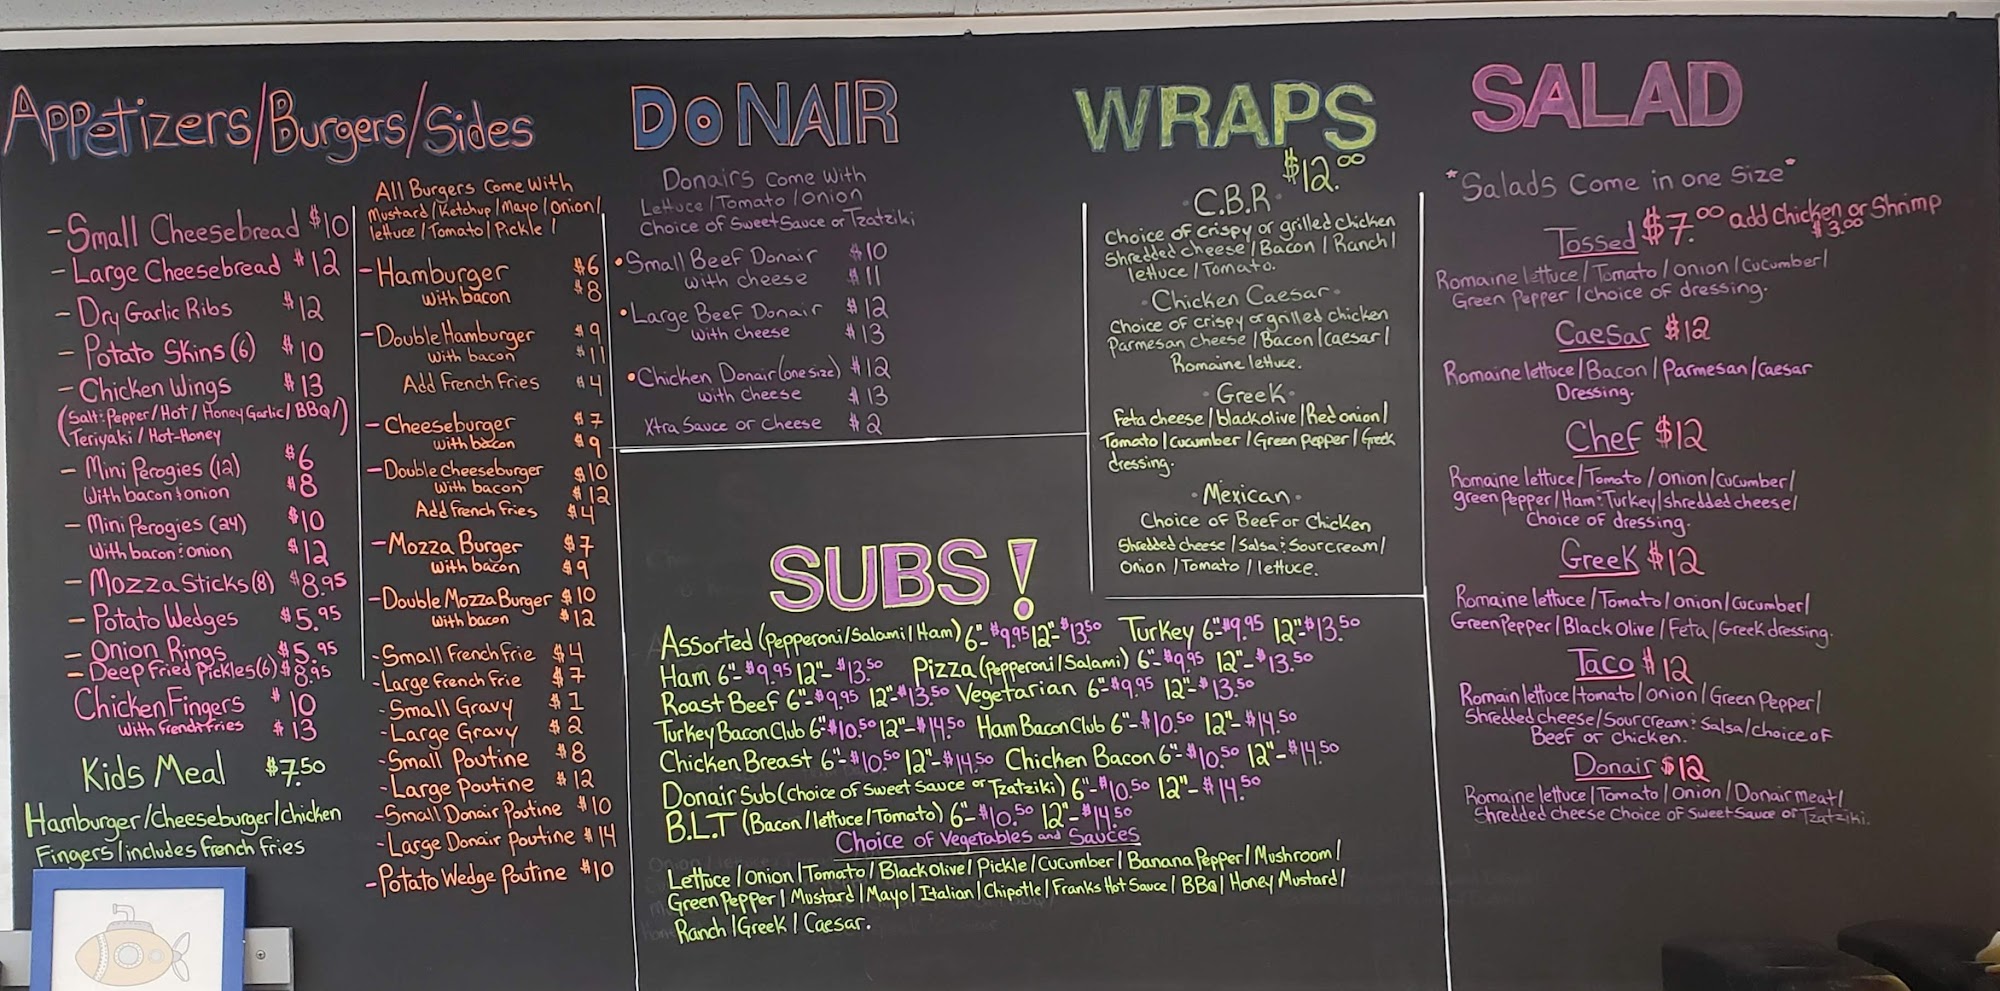 Appetizers/Burgers/Sides
- Small Cheesebread $10
- Large Cheesebread $12
- Dry Garlic Ribs $12
- Potato Skins (6) $10
- Chicken Wings $13
(Salt: Pepper / Hot / Honey Garlic / BBQ /
Teriyaki / Hot-Honey)
- Mini Perogies (12) $6
with bacon & onion $8
- Mini Perogies (24) $10
with bacon & onion $12
- Mozza Sticks (8) $8.95
- Potato Wedges $5.95
- Onion Rings $5.95
- Deep Fried Pickles (6) $8.95
Chicken Fingers $10
with french fries $13
Kids Meal $7.50
Hamburger/Cheeseburger/chicken
Fingers/includes french fries
All Burgers Come With
Mustard / Ketchup / Mayo / Onion /
lettuce / Tomato / Pickle /
- Hamburger $6
with bacon $8
- Double Hamburger $9
with bacon $11
Add French Fries $4
- Cheeseburger $7
with bacon $9
- Double cheeseburger $10
with bacon $12
Add french fries $4
- Mozza Burger $7
with bacon $9
- Double Mozza Burger $10
with bacon $12
- Small French Frie $4
- Large French Frie $7
- Small Gravy $1
- Large Gravy $2
- Small Poutine $8
- Large Poutine $12
- Small Donair Poutine $10
- Large Donair Poutine $14
- Potato Wedge Poutine $10
DoNAIR
Donairs Come With
Lettuce / Tomato / Onion
Choice of Sweet Sauce or Tzatziki
• Small Beef Donair $10
with cheese $11
• Large Beef Donair $12
with cheese $13
• Chicken Donair (one size) $12
with cheese $13
Xtra Sauce or Cheese $2
SUBS!
Assorted (Pepperoni/Salami/Ham) 6"-$9.95 12"-$13.50 Turkey 6"-$9.95 12"-$13.50
Ham 6"-$9.95 12"-$13.50 Pizza (Pepperoni/Salami) 6"-$9.95 12"-$13.50
Roast Beef 6"-$9.95 12"-$13.50 Vegetarian 6"-$9.95 12"-$13.50
Turkey Bacon Club 6"-$10.50 12"-$14.50 Ham Bacon Club 6"-$10.50 12"-$14.50
Chicken Breast 6"-$10.50 12"-$14.50 Chicken Bacon 6"-$10.50 12"-$14.50
Donair Sub (Choice of Sweet Sauce or Tzatziki) 6"-$10.50 12"-$14.50
B.L.T (Bacon/lettuce/Tomato) 6"-$10.50 12"-$14.50
Choice of Vegetables and Sauces
Lettuce / Onion / Tomato / Black Olive / Pickle / Cucumber / Banana Pepper / Mushroom /
Green Pepper / Mustard / Mayo / Italian / Chipotle / Franks Hot Sauce / BBQ / Honey Mustard /
Ranch / Greek / Caesar.
WRAPS
$12.00
• C.B.R •
Choice of crispy or grilled chicken
Shredded cheese / Bacon / Ranch /
lettuce / Tomato.
• Chicken Caesar •
Choice of crispy or grilled chicken
Parmesan cheese / Bacon / caesar /
Romaine lettuce.
• Greek •
Feta cheese / black olive / Red onion /
Tomato / cucumber / Green Pepper / Greek
dressing.
• Mexican •
Choice of Beef or Chicken
Shredded cheese / Salsa : Sour cream /
Onion / Tomato / lettuce.
SALAD
*Salads Come in one Size*
Tossed $7.00 add Chicken or Shrimp
$3.00
Romaine lettuce / Tomato / Onion / Cucumber /
Green Pepper / choice of dressing.
Caesar $12
Romaine lettuce / Bacon / Parmesan / Caesar
Dressing.
Chef $12
Romaine lettuce / Tomato / Onion / Cucumber /
green Pepper / Ham : Turkey / shredded cheese /
Choice of dressing.
Greek $12
Romaine lettuce / Tomato / onion / cucumber /
Green Pepper / Black Olive / Feta / Greek dressing.
Taco $12
Romain lettuce / tomato / Onion / Green Pepper /
Shredded cheese / Sour cream : Salsa / choice of
Beef or chicken.
Donair $12
Romaine lettuce / Tomato / Onion / Donair meat /
Shredded Cheese Choice of Sweet Sauce or Tzatziki.